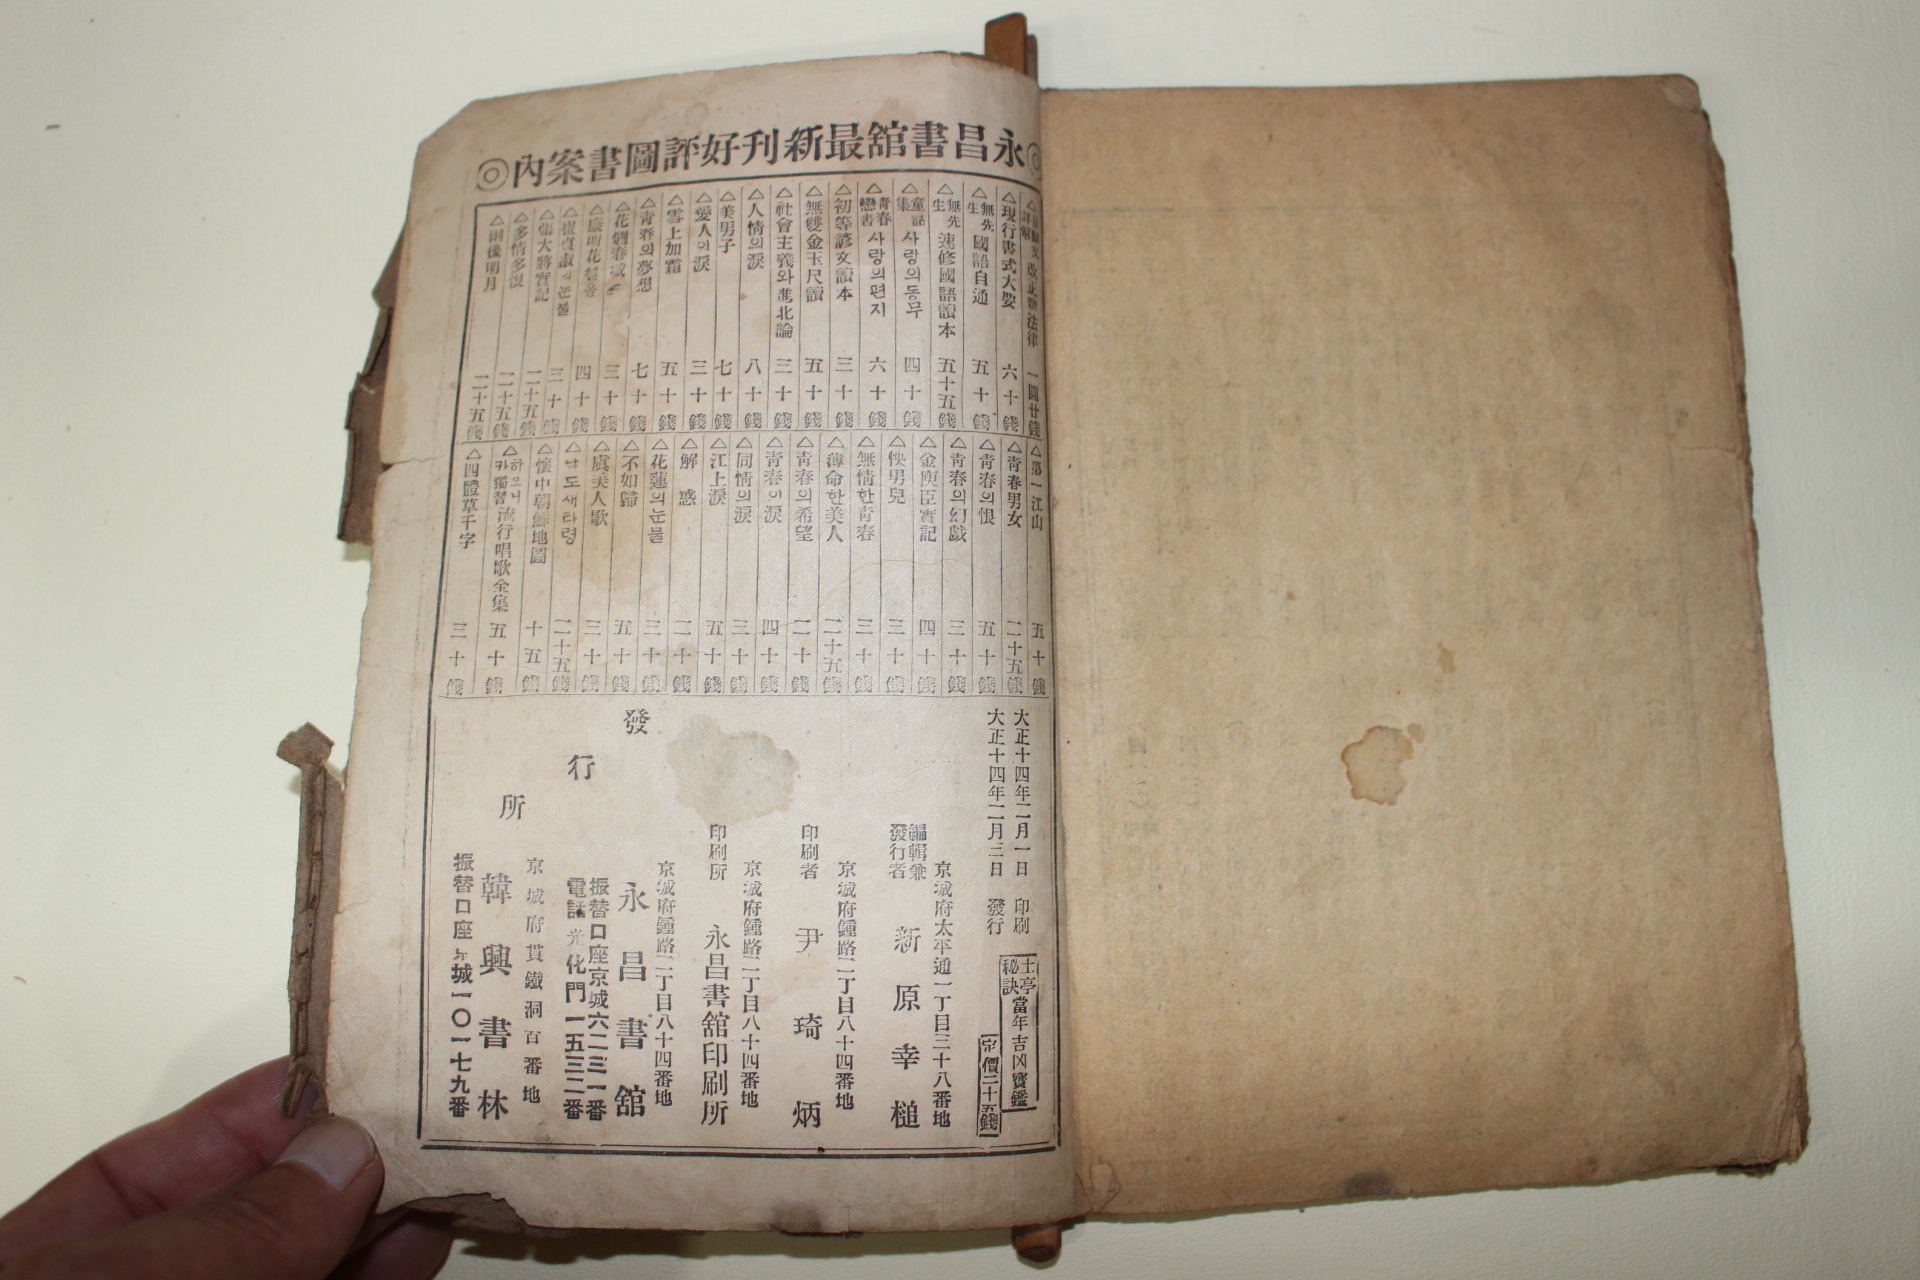 ◎永昌書舘最新刊好評圖書案內◎
改正 法律 一圓廿錢
△現行書式大要 六十錢
△無先生 國語自通 五十錢
△無先生 速修國語讀本 五十五錢
△童話集 사랑의동무 四十錢
△靑春戀書 사랑의편지 六十錢
△初等諺文讀本 三十錢
△無雙金玉尺牘 五十錢
△社會主義와進化論 三十錢
△人情의淚 八十錢
△美男子 七十錢
△愛人의淚 三十錢
△雪上加霜 五十錢
△靑春의夢想 七十錢
△花 春 三十錢
△康明花 四十錢
△崔貞淑의눈물 三十錢
△張大將實記 二十五錢
△多情多恨 二十五錢
△雨後明月 二十五錢
△第一江山 五十錢
△靑春男女 二十五錢
△靑春의恨 五十錢
△靑春의幻戱 三十錢
△金庾臣實記 四十錢
△快男兒 三十錢
△無情한靑春 三十錢
△薄命한美人 二十五錢
△靑春의希望 二十錢
△靑春이淚 四十錢
△同情의淚 三十錢
△江上淚 五十錢
△解惑 二十錢
△花蓮의눈물 三十錢
△不如歸 五十錢
△虞美人歌 三十錢
도새타령 二十五錢
△懷中朝鮮地圖 十五錢
△하모니카獨習 流行唱歌全集 五十錢
△四體草千字 三十錢
大正十四年二月一日 印刷
大正十四年二月三日 發行
土亭秘訣 當年吉凶寶鑑
定價二十五錢
京城府太平通一丁目三十八番地
編輯兼發行者 新原幸槌
京城府鍾路二丁目八十四番地
印刷者 尹琦炳
京城府鍾路二丁目八十四番地
印刷所 永昌書舘印刷所
京城府鍾路二丁目八十四番地
發行所 永昌書舘
振替口座京城六二三一番
電話光化門一五三二番
京城府貫鐵洞百番地
韓興書林
振替口座京城一〇一七九番